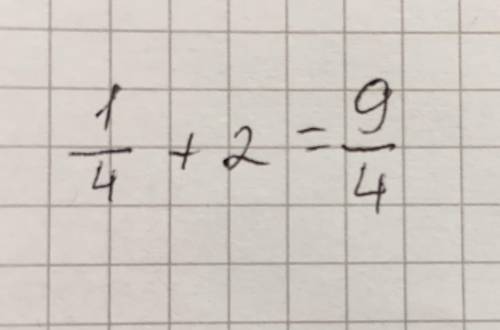 1/4 + 2 = 9/4